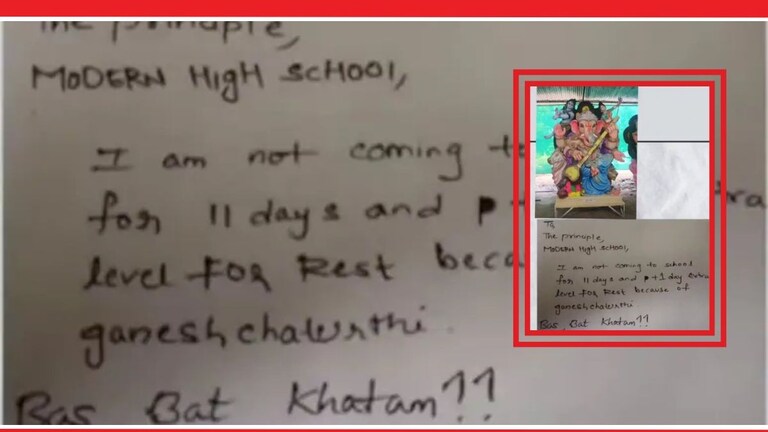 The principle,
MODERN HIgH SCHOOl,
I am not coming to
for 11 days and P+
level FOR Rest beca
ganeshchaturthi.
Bas Bat Khatam!!
To
The principle,
MODERN HIgH SCHOOl,
I am not coming to school
for 11 days and P+1 day extra
level FOR Rest because of
ganeshchaturthi
Bas Bat Khatam!!